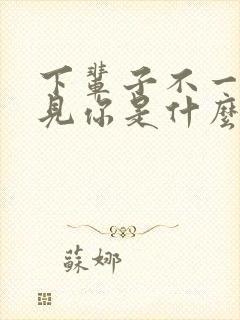 下輩子不一
見你是什麼
蘇娜